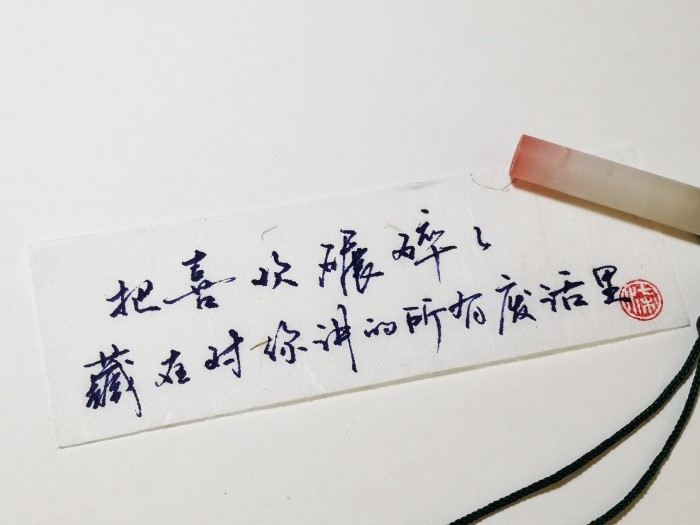 把喜欢碾碎了
藏在对你讲的所有废话里